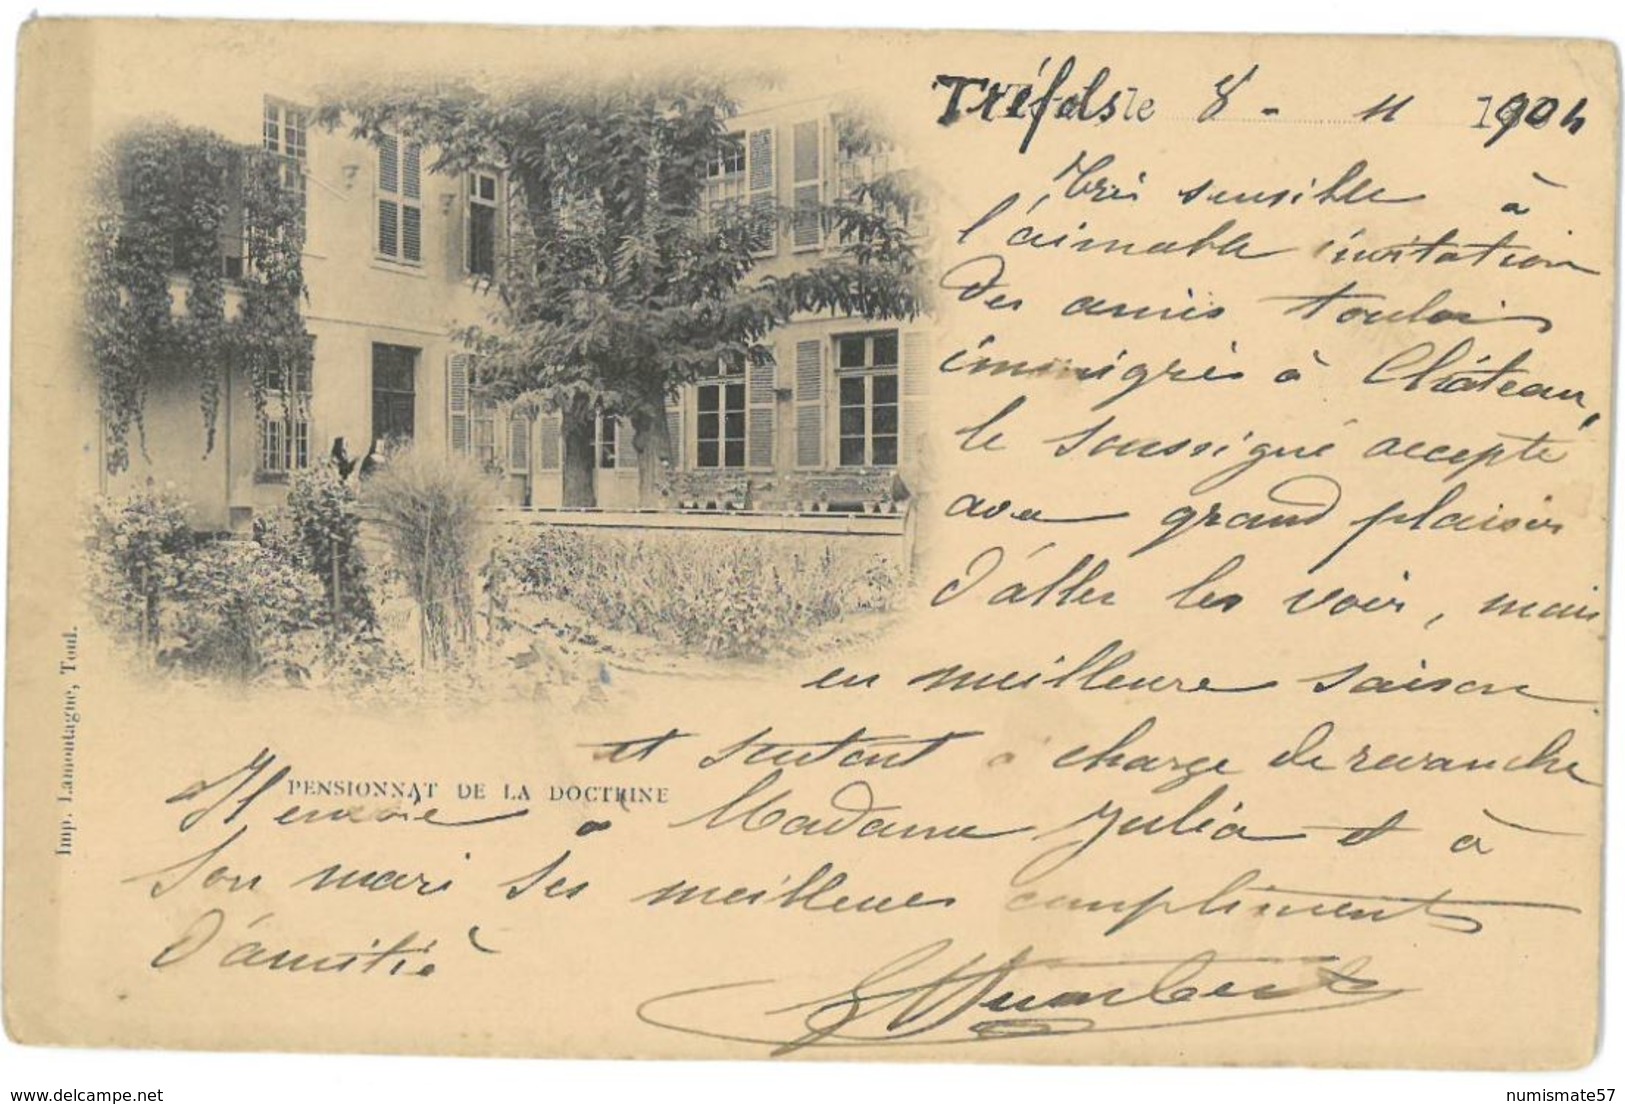 Trifols le 8 - 11 1904
Très sensible à
l'aimable invitation
des amis toulois
immigrés à Château,
le soussigné accepte
avec grand plaisir
d'aller les voir, mais
en meilleure saison
et surtout à charge de revanche
PENSIONNAT DE LA DOCTRINE
Il envoie à Madame Julia et à
son mari ses meilleurs compliments
d'amitié
Humbert
Imp. Lamontagne, Toul.
www.delcampe.net
numismate57